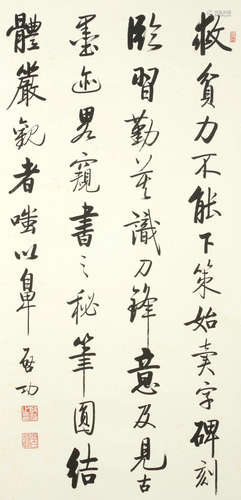 救貧力不能下策始賣字碑刻
臨習勤莫識刀鋒意及見古
墨迹略窺書之秘筆圓結
體嚴觀者嗤以鼻 啟功